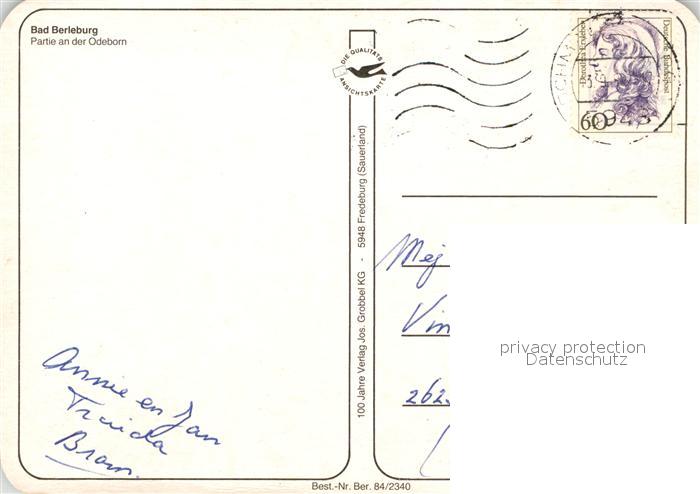 Bad Berleburg
Partie an der Odeborn
DIE QUALITÄTS
ANSICHTSKARTE
Dorothea Erxleben
Deutsche Bundespost
60
100 Jahre Verlag Jos. Grobbel KG - 5948 Fredeburg (Sauerland)
Mej
Vin
262
privacy protection
Datenschutz
Annie en Jan
Truida
Bram
Best.-Nr. Ber. 84/2340